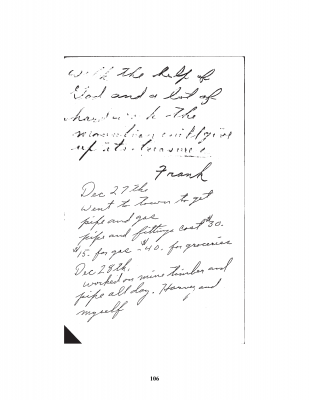 with the help of
God and a lot of
hardwork the
mountian will give
up its treasure
Frank
Dec 27th
went to town to get
pipe and gas
pipe and fittings cost $30.
$15. for gas - $40. for groceries
Dec 28th.
worked on mine timber and
pipe all day. Harvey and
myself
106